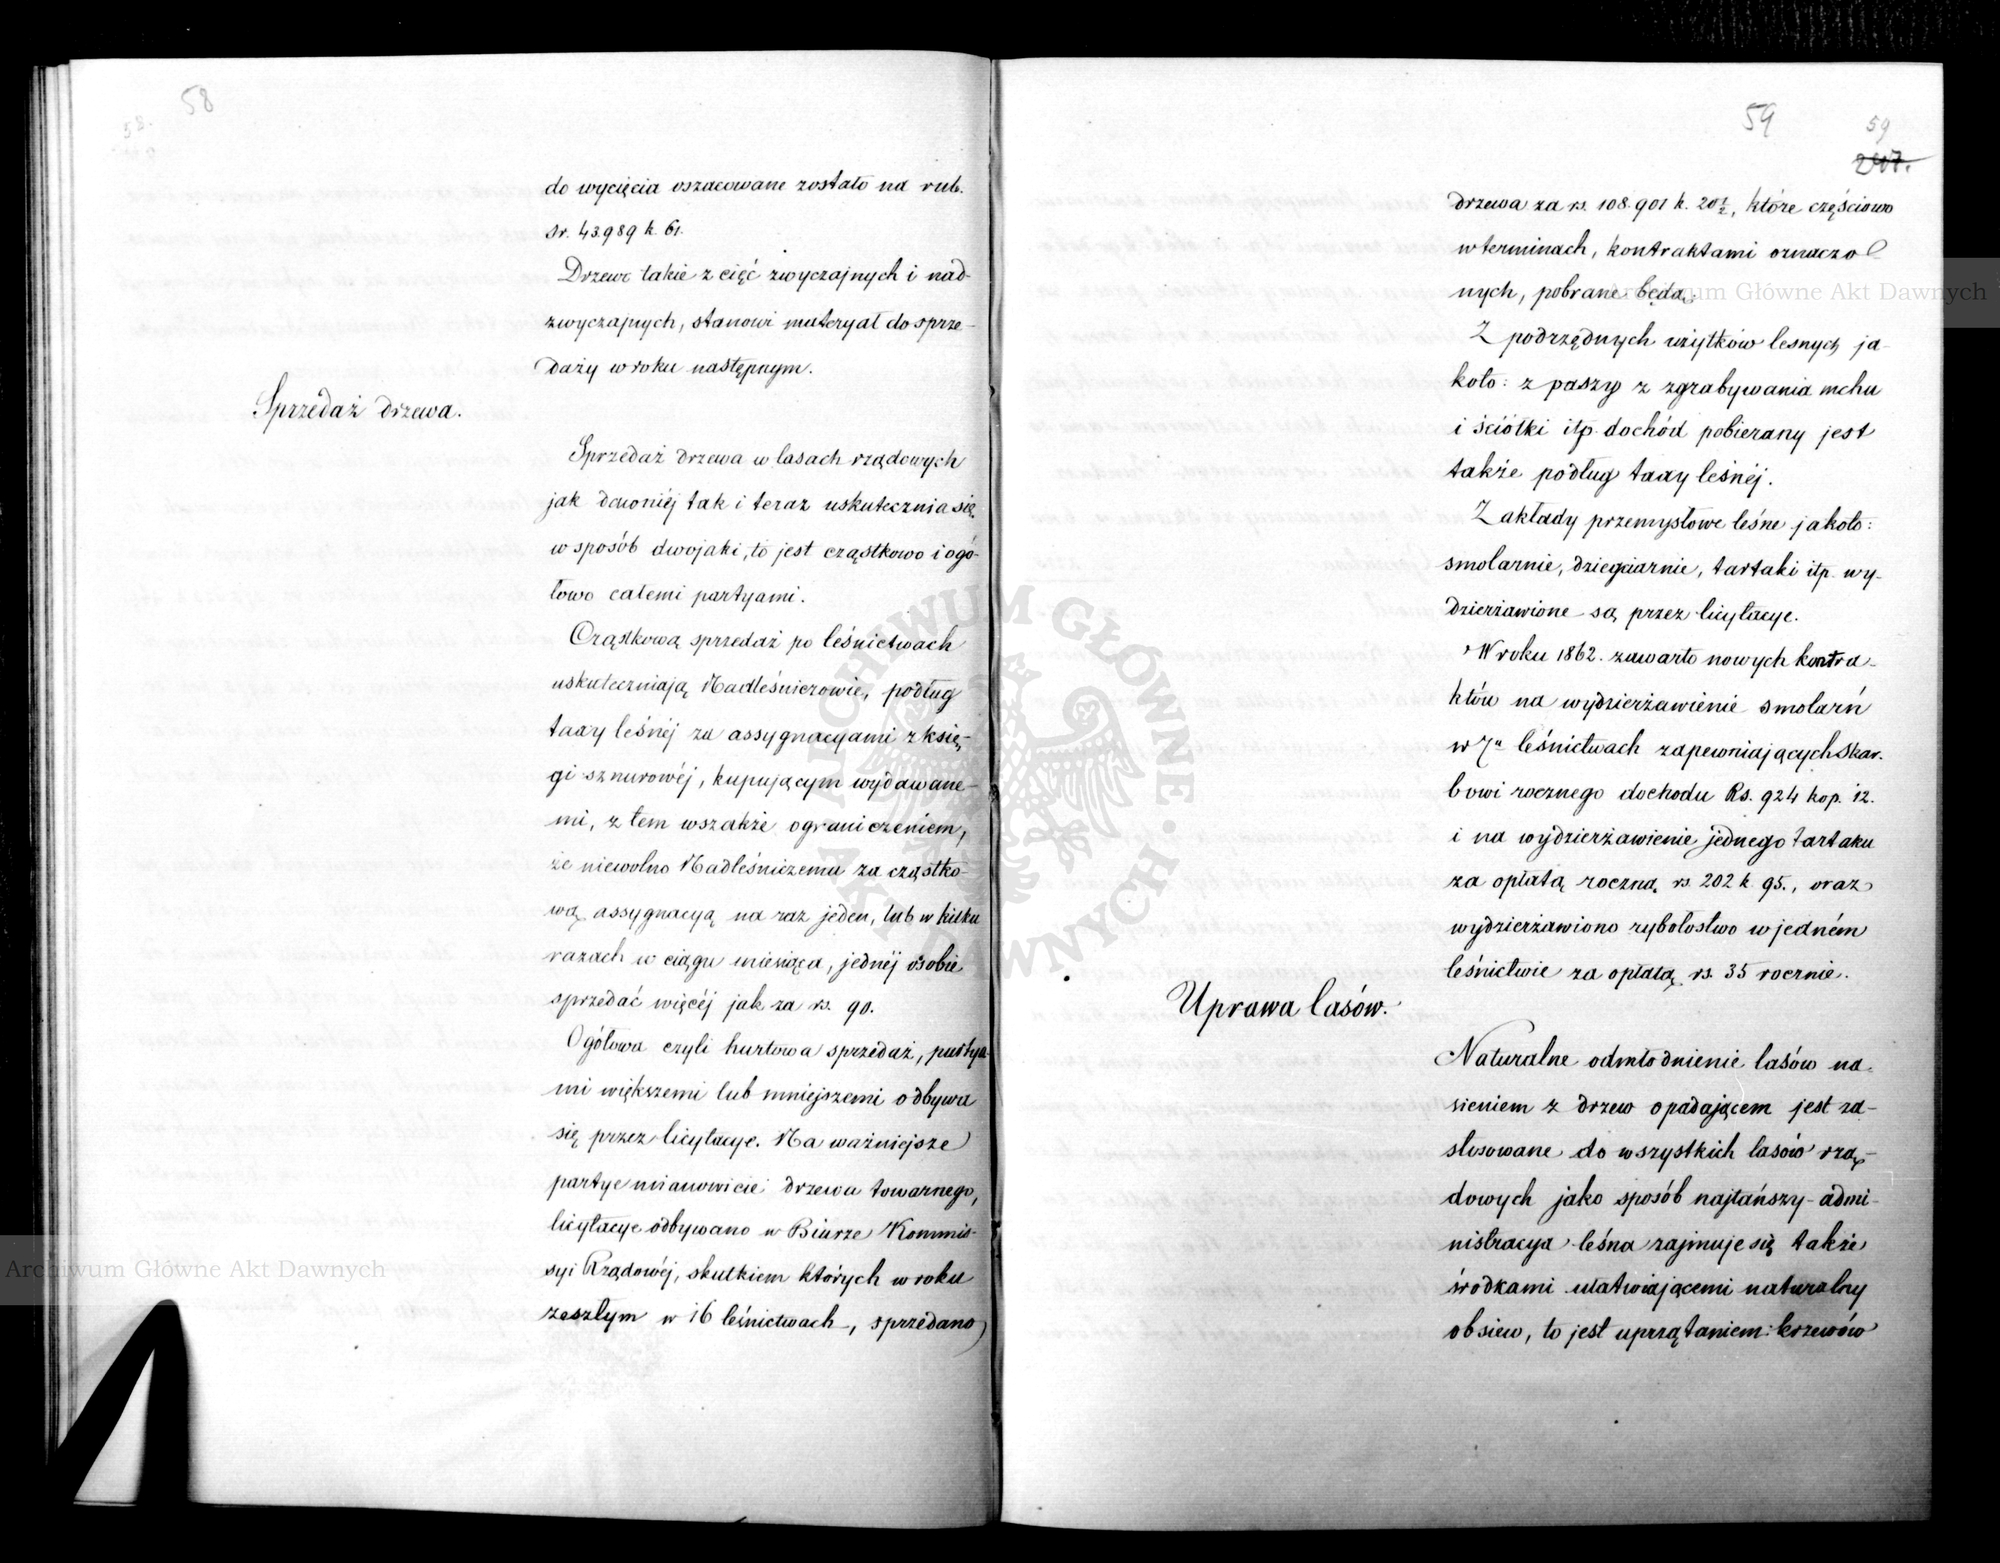 58
58.
do wycięcia oszacowane zostało na rub.
sr. 43.989 k. 61.
Drzewo takie z cięć zwyczajnych i nad-
zwyczajnych, stanowi materyał do sprze-
daży w roku następnym.
Sprzedaż drzewa.
Sprzedaż drzewa w lasach rządowych
jak dawniéj tak i teraz uskutecznia się
w sposób dwojaki, to jest cząstkowo i ogó-
łowo całemi partyami.
Cząstkową sprzedaż po leśnictwach
uskuteczniają Nadleśniczowie, podług
taxy leśnéj za assygnacyami z księ-
gi sznurowéj, kupującym wydawane-
mi, z tem wszakże ograniczeniem,
że niewolno Nadleśniczemu za cząstko-
wą assygnacyą na raz jeden, lub w kilku
razach w ciągu miesiąca, jednéj osobie
sprzedać więcéj jak za rs. 90.
Ogółowa czyli hurtowa sprzedaż, partya-
mi większemi lub mniejszemi odbywa
się przez licytacye. Na ważniejsze
partye mianowicie drzewa towarnego,
licytacye odbywano w Biurze Kommis-
syi Rządowéj, skutkiem których w roku
zeszłym w 16 leśnictwach, sprzedano
59
59
247.
drzewa za rs. 108.901 k. 20½, które częściowo
w terminach, kontraktami oznaczo
nych, pobrane będą.
Z podrzędnych użytków lesnych ja-
koto: z paszy z zgrabywania mchu
i ściółki itp. dochód pobierany jest
także podług taxy leśnéj.
Zakłady przemysłowe leśne jakoto:
smolarnie, dziegciarnie, tartaki itp. wy-
dzierżawione są przez licytacye.
W roku 1862. zawarto nowych kontra-
któw na wydzierżawienie smolarń
w 7u leśnictwach zapewniających Skar-
bowi rocznego dochodu Rs. 924 kop. 12.
i na wydzierżawienie jednego tartaku
za opłatą roczną rs. 202 k. 95., oraz
wydzierżawiono rybołostwo w jedném
leśnictwie za opłatą rs. 35 rocznie.
Uprawa lasów.
Naturalne odmłodnienie lasów na-
sieniem z drzew opadającem jest za-
stosowane do wszystkich lasów rzą-
dowych jako sposób najtańszy - admi-
nistracya leśna zajmuje się także
środkami ułatwiającemi naturalny
obsiew, to jest uprzątaniem krzewów
Archiwum Główne Akt Dawnych
Archiwum Główne Akt Dawnych
ARCHIWUM GŁÓWNE AKT DAWNYCH